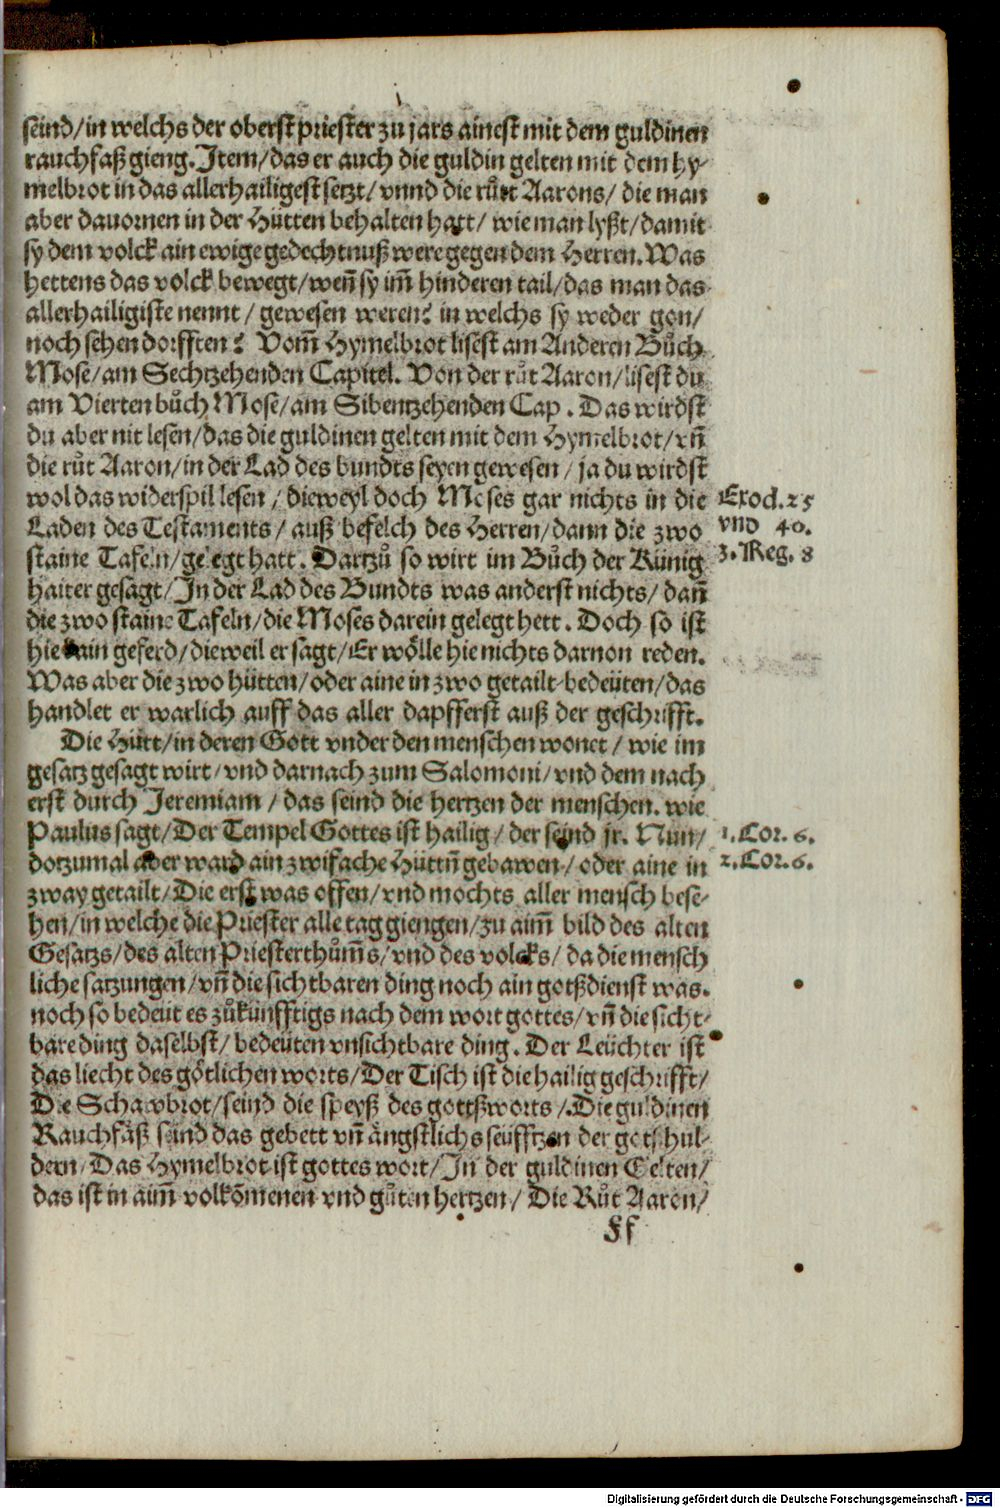 seind/in welchs der oberst priester zu jars ainest mit dem guldinen
rauchfaß gieng. Item/das er auch die guldin gelten mit dem hy-
melbrot in das allerhailigest setzt/vnnd die růt Aarons/die man
aber dauornen in der Hütten behalten hatt/wie man lyßt/damit
sy dem volck ain ewige gedechtnuß were gegen dem Herren. Was
hettens das volck bewegt/wen̄ sy im̄ hinderen tail/das man das
allerhailigiste nennt/gewesen weren? in welchs sy weder gon/
noch sehen dorfften? Vom̄ Hymelbrot lisest am Anderen Bůch
Mose/am Sechtzehenden Capitel. Von der růt Aaron/lisest du
am Vierten bůch Mose/am Sibentzehenden Cap. Das wirdst
du aber nit lesen/das die guldinen gelten mit dem Hymelbrot/vn̄
die růt Aaron/in der Lad des bundts seyen gewesen/ja du wirdst
wol das widerspil lesen/dieweyl doch Moses gar nichts in die
Laden des Testaments/auß befelch des Herren/dann die zwo
staine Tafeln/gelegt hatt. Dartzů so wirt im Bůch der Künig
haiter gesagt/In der Lad des Bundts was anderst nichts/dan̄
die zwo staine Tafeln/die Moses darein gelegt hett. Doch so ist
hie kain geferd/dieweil er sagt/Er wölle hie nichts darnon reden.
Was aber die zwo hütten/oder aine in zwo getailt bedeüten/das
handlet er warlich auff das aller dapfferst auß der geschrifft.
Die Hütt/in deren Gott vnder den menschen wonet/wie im
gesatz gesagt wirt/vnd darnach zum Salomoni/vnd dem nach
erst durch Jeremiam/das seind die hertzen der menschen. wie
Paulus sagt/Der Tempel Gottes ist hailig/der seind jr. Nun/
dotzumal aber ward ain zwifache Hüttn̄ gebawen/oder aine in
zway getailt/Die erst was offen/vnd mochts aller mensch bese-
hen/in welche die Priester alle tag giengen/zu aim̄ bild des alten
Gesatzs/des alten Priesterthům̄s/vnd des volcks/da die mensch
liche satzungen/vn̄ die sichtbaren ding noch ain gotßdienst was.
noch so bedeüt es zůkünfftigs nach dem wort gottes/vn̄ die sicht-
bare ding daselbst/bedeüten vnsichtbare ding. Der Leüchter ist
das liecht des götlichen worts/Der Tisch ist die hailig geschrifft/
Die Schawbrot/seind die speyß des gottßworts/Die guldinen
Rauchfäß seind das gebett vn̄ ängstlichs seüfftzen der gotßhul-
dern/Das Hymelbrot ist gottes wort/In der guldinen Gelten/
das ist in aim̄ volkōmenen vnd gůten hertzen/Die Růt Aaron/
Ff
Exod. 25
vnd 40.
3. Reg. 8
1. Cor. 6.
2. Cor. 6.
Digitalisierung gefördert durch die Deutsche Forschungsgemeinschaft - DFG